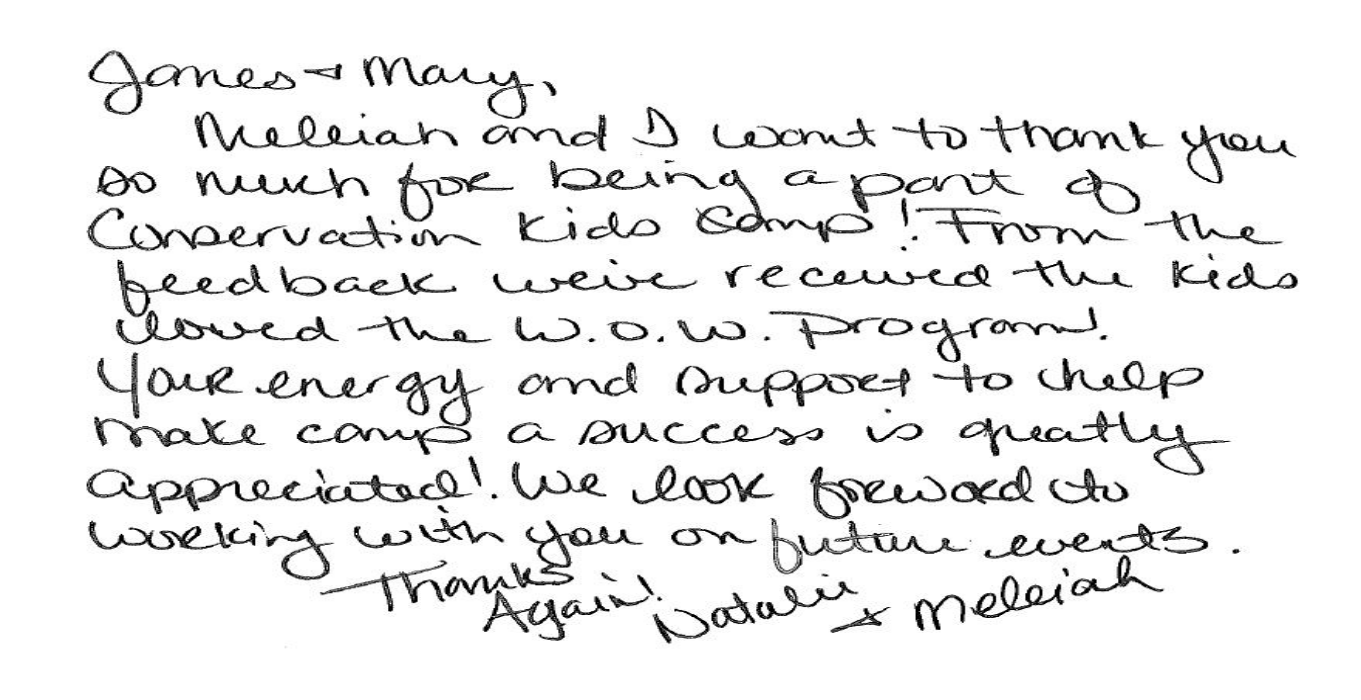 James & Mary,
Meleiah and I want to thank you
so much for being a part of
Conservation Kids Camp! From the
feedback we've received the kids
loved the W.O.W. Program!
Your energy and support to help
make camp a success is greatly
appreciated! We look foreword to
working with you on future events.
Thanks
Again!
Natalie
& Meleiah